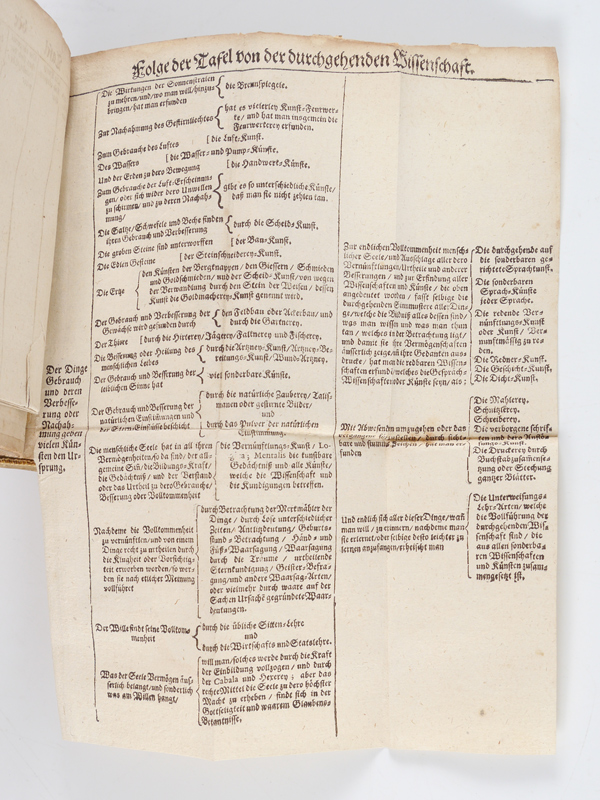 Folge der Tafel von der durchgehenden Wissenschaft.
Der Dinge
Gebrauch
und deren
Verbesse-
rung oder
Nachah-
mung geben
vielen Kün-
sten den Ur-
sprung,
Die Wirkungen der Sonnenstralen
zu mehren/und/wo man will/hinzu-
bringen/hat man erfunden
die Brennspiegele.
Zur Nachahmung des Gestirnliechtes
hat es vielerley Kunst-Feurwer-
ke/ und hat man insgemein die
Feurwerkerey erfunden.
Zum Gebrauche des Luftes
[die Luft-Kunst.
Des Wassers
[die Wasser- und Pump-Künste.
Und der Erden zu dero Bewegung
[die Handwerks-Künste.
Zum Gebrauche der Luft-Erscheinun-
gen/ oder sich wider dero Unwellen
zu schirmen/ und zu deren Nachah-
mung/
gibt es so unterschiedliche Künste/
daß man sie nicht zehlen kan.
Die Saltze/Schwefele und Beche finden
ihren Gebrauch und Verbesserung
durch die Scheide-Kunst.
Die groben Steine sind unterworffen
[der Bau-Kunst.
Die Edlen Gesteine
[der Steinschneiderey-Kunst.
Die Ertze
den Künsten der Bergknappen/ den Giessern/ Schmieden
und Goldschmieden/ und der Scheide-Kunst/von wegen
der Verwandlung durch den Stein der Weisen/ dessen
Kunst die Goldmacherey-Kunst genennt wird.
Der Gebrauch und Verbesserung der
Gewächse wird gefunden durch
den Feldbau oder Ackerbau/ und
durch die Gärtnerey.
Der Thiere
[durch die Hirterey/Jägerey/Falknerey und Fischerey.
Die Besserung oder Heilung des
menschlichen Leibes
durch die Artzney-Kunst/Artzney-Be-
reitungs-Kunst/Wund-Artzney.
Der Gebrauch und Besserung der
leiblichen Sinne hat
viel sonderbare Künste.
Der Gebrauch und Besserung der
natürlichen Einflüssungen und
durch die natürliche Zauberey/ Talis-
manen oder gestirnte Bilder/
und
durch das Pulver der natürlichen
Die menschliche Seele hat in all ihren
Vermögenheiten/so da sind/ der all-
gemeine Sinn/die Bildungs-Kraft/
die Gedächtniß/ und der Verstand
oder das Urtheil zu dero Gebrauche/
Besserung oder Vollkommenheit
die Vernünftlungs-Kunst/
Mentalis die kunstbare
Gedächtniß und alle Künste/
welche die Wissenschaft und
die Kundigungen betreffen.
Nachdeme die Vollkommenheit
zu vernünftlen/und von einem
Dinge recht zu urtheilen durch
die Klugheit oder Vorsichtig-
keit erworben werden/ so wer-
den sie nach etlicher Meinung
vollführet
durch Betrachtung der Merkmähler der
Dinge/ durch Lose unterschiedlicher
Zeiten/ Antlitzdeutung/ Geburts-
stund-Betrachtung/ Hand- und
Füß-Waarsagung/ Waarsagung
durch die Träume/ urtheilende
Sternkündigung/ Geister-Befra-
gung/und andere Waarsag-Arten/
oder vielmehr durch waare auf der
Sachen Ursache gegründete Waar-
deutungen.
Der Wille findt seine Vollkom-
menheit
durch die übliche Sitten-Lehre
und
durch die Wirtschafts und Statslehre.
Was der Seele Vermögen äus-
serlich belangt/und sonderlich
was am Willen hangt/
will man/solches werde durch die Kraft
der Einbildung vollzogen/ und durch
der Cabala und Hexerey; aber das
rechte Mittel die Seele zu dero höchster
Macht zu erheben/ findt sich in der
Gottseligkeit und waarem Glaubens-
Bekantnisse,
Zur endlichen Vollkommenheit mensch-
licher Seele/und Ausschlage aller dero
Vernünftlungen/Urtheile und anderer
Besserungen/ und zur Erfindung aller
Wissenschaften und Künste/ die oben
angedeutet worden/ fasst selbige die
durchgehenden Kunst aller Din-
ge/welche die Bildniß alles dessen sind/
was man wissen und was man thun
kan/ welches in der Betrachtung ligt/
und damit sie ihre Vermögenschaften
äusserlich zeige/und ihre Gedanken aus-
drucke/ hat man die redbaren Wissen-
schaften erfund/welches die Gespräch-
Wissenschaften oder Künste seyn/ als:
Die durchgehende auf
die sonderbaren ge-
richtete Sprachkunst.
Die sonderbaren
Sprach-Künste
jeder Sprache.
Die redende Ver-
nünftlungs-Kunst
oder Kunst/ Ver-
nunftmässig zu re-
den.
Die Redner-Kunst.
Die Geschicht-Kunst.
Die Dicht-Kunst.
Mit Abwesenden umzugehen oder das
Vergangene fürzustellen/ durch sicht-
bare und stumme Zeichen/ hat man er-
funden
Die Mahlerey.
Schnitzlerey.
Schreiberey.
Die verborgene Schrif-
ten und dero Auslös-
sungs-Kunst.
Die Druckerey durch
Buchstabzusammense-
tzung oder Stechung
gantzer Blätter.
Und endlich sich aller dieser Dinge/wañ
man will/ zu erinnern/ nachdeme man
sie erlernet/oder selbige desto leichter zu
lernen anzufangen/erheischet man
Die Unterweisungs-
Lehr-Arten/ welche
die Vollführung der
durchgehenden Wis-
senschaft sind/ die
aus allen sonderba-
ren Wissenschaften
und Künsten zusam-
mengesetzt ist,